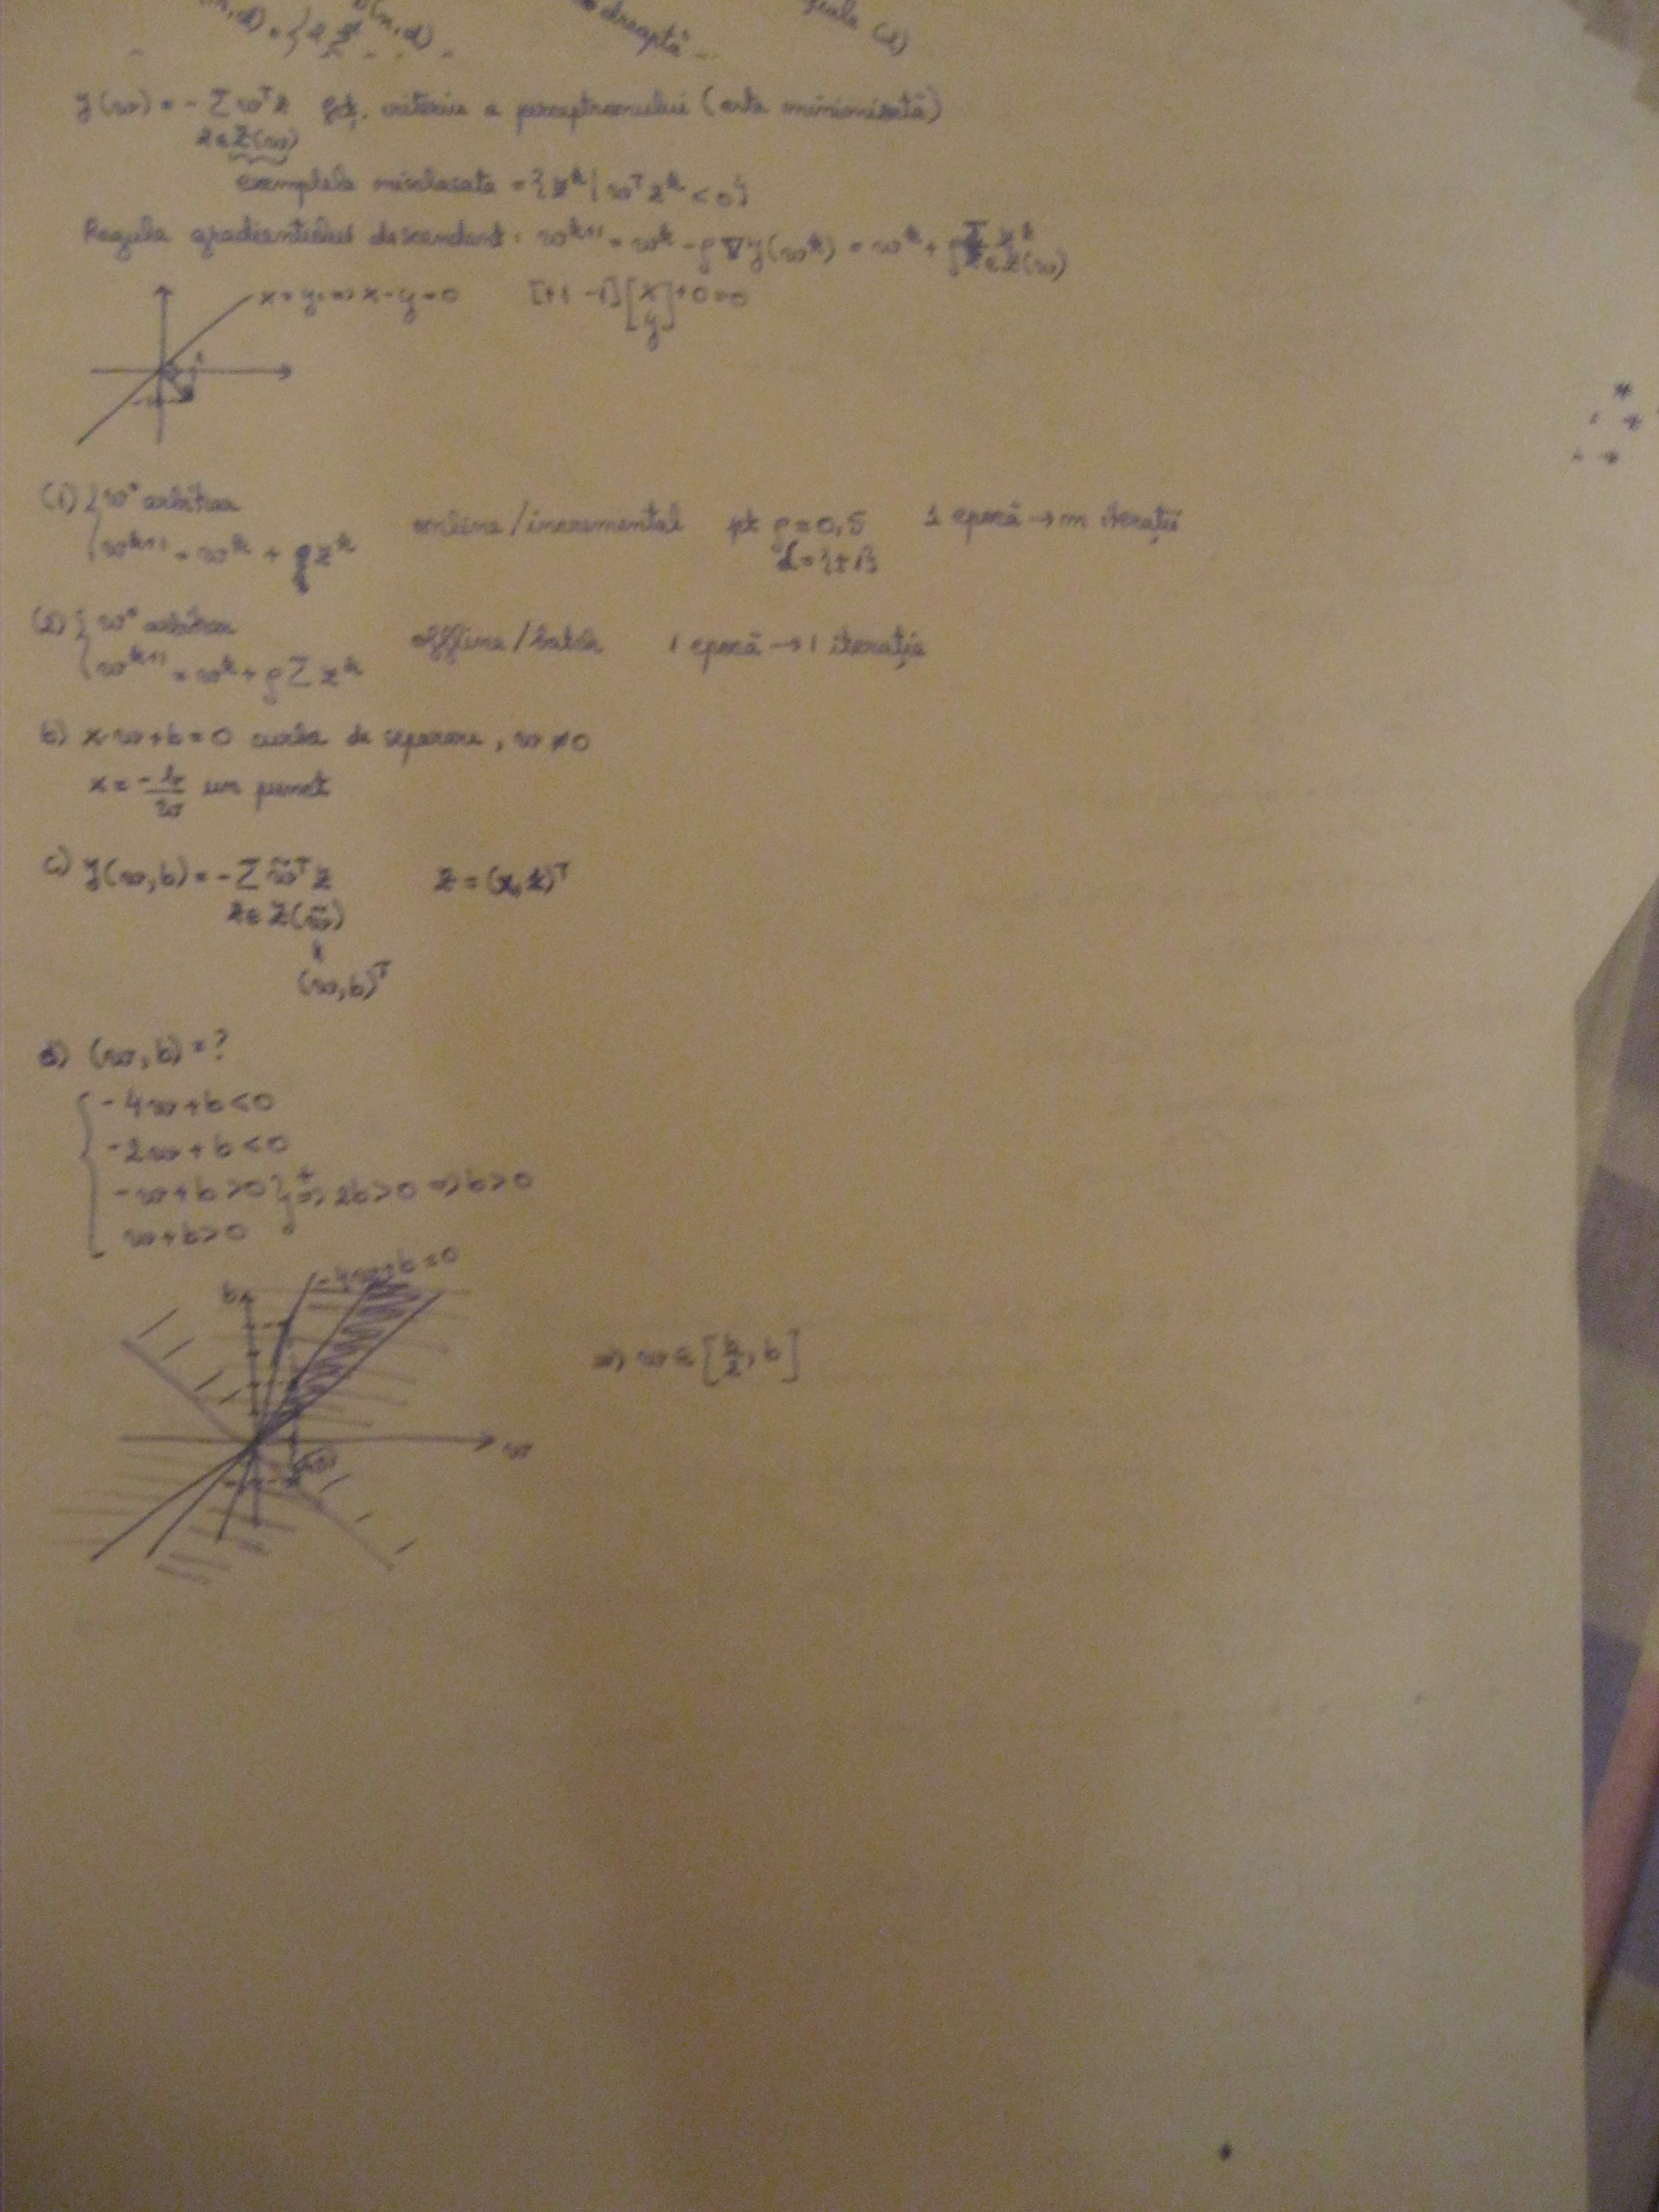 dreaptă
J(w) = - Σ wᵀz fct. criteriu a perceptronului (este minimizată)
z∈Z(w)
exemplele misclasate = {zᵏ | wᵀzᵏ < 0}
Regula gradientului descendent: wᵏ⁺¹ = wᵏ - ρ∇J(wᵏ) = wᵏ + ρ Σ zᵏ
z∈Z(w)
x = y => x - y = 0 [+1 -1] [x y] + 0 = 0
(1) { w⁰ arbitrar
wᵏ⁺¹ = wᵏ + ρzᵏ online/incremental pt ρ = 0,5 1 epocă → m iterații
= {±1}
(2) { w⁰ arbitrar
wᵏ⁺¹ = wᵏ + ρ Σ zᵏ offline/batch 1 epocă → 1 iterație
b) x·w + b = 0 curba de separare, w ≠ 0
x = -b/w un punct
c) J(w,b) = - Σ w̃ᵀz z = (x, 1)ᵀ
z∈Z(w̃)
(w,b)ᵀ
d) (w,b) = ?
{ -4w + b < 0
-2w + b < 0
-w + b > 0 } + => 2b > 0 => b > 0
w + b > 0
-4w + b = 0
b
w
=> w ∈ [b/2, b]